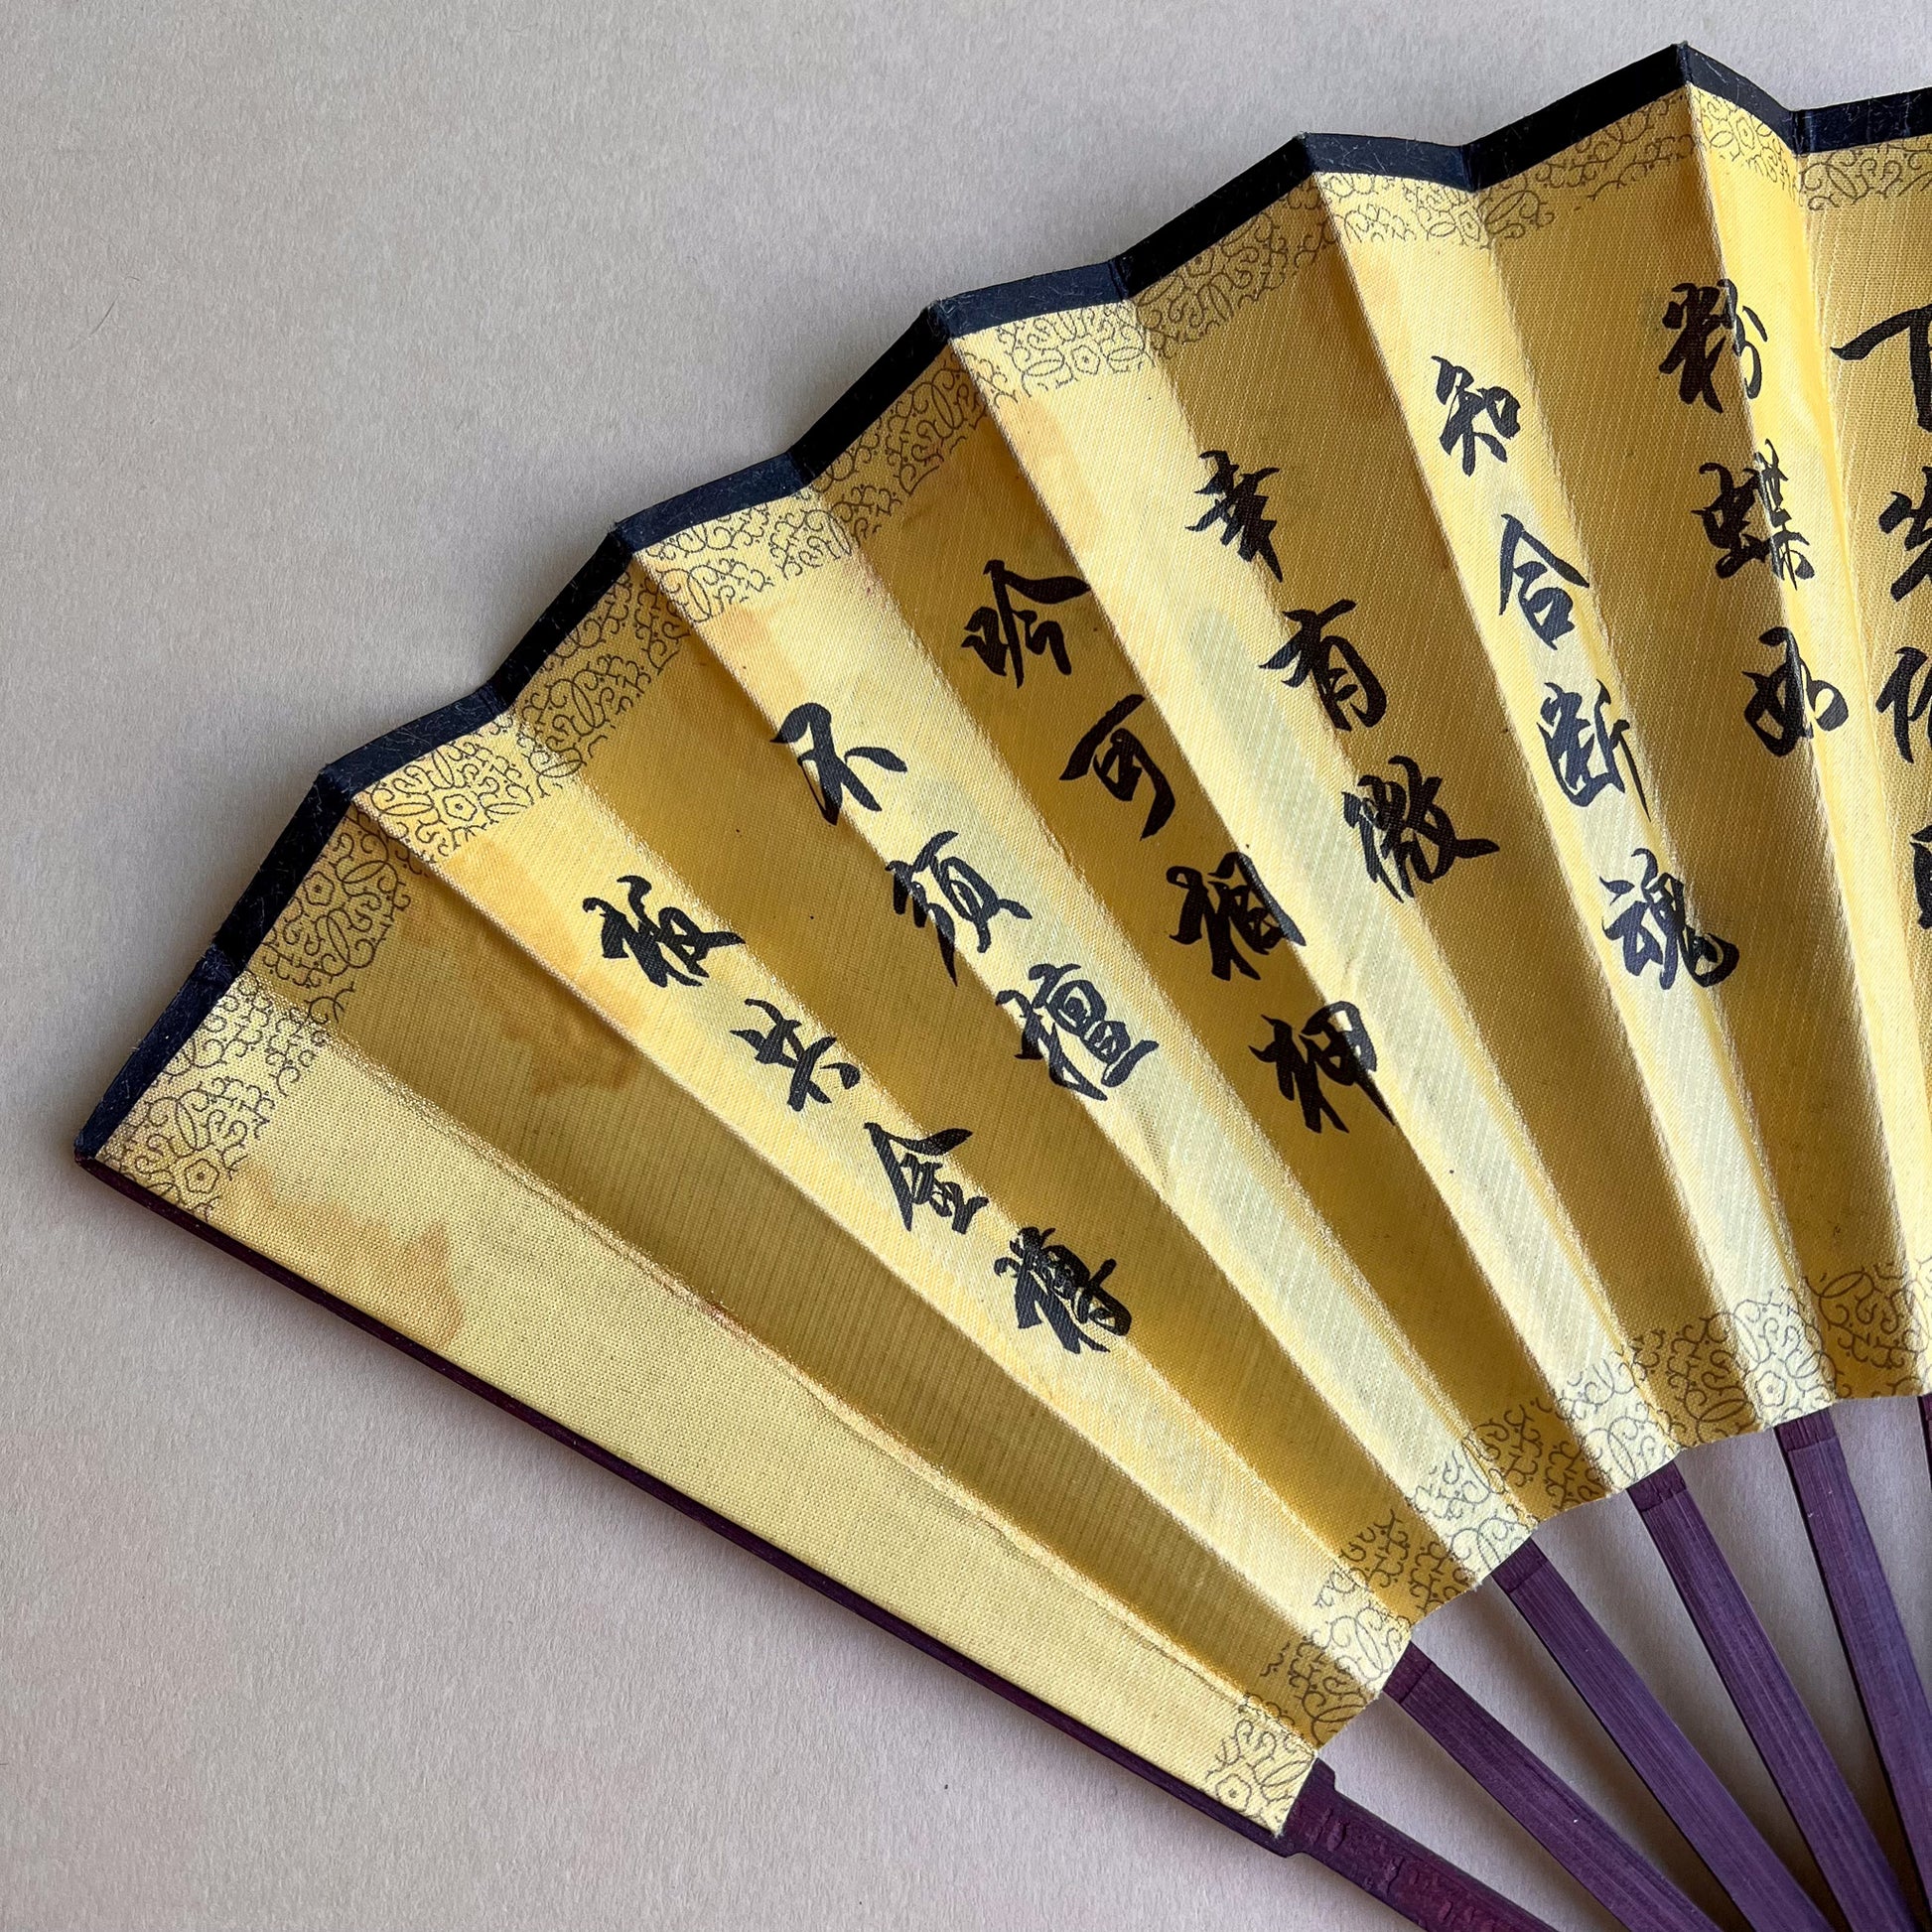 下先偷
粉蝶如
知合断魂
幸有微
吟可相狎
不须檀
板共金樽